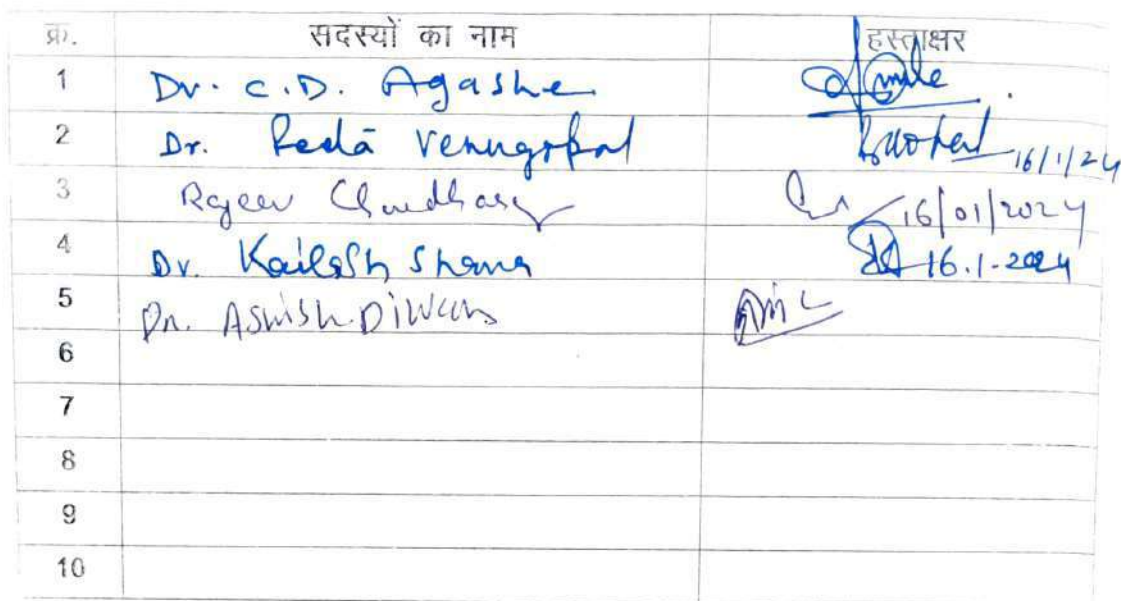 क्र. सदस्यों का नाम हस्ताक्षर
1 Dr. C.D. Agashe
2 Dr. Reeta Venugopal 16/1/24
3 Rajeev Choudhary 16/01/2024
4 Dr. Kailash Sharma 16.1.2024
5 Dr. Ashish Diwan
6
7
8
9
10